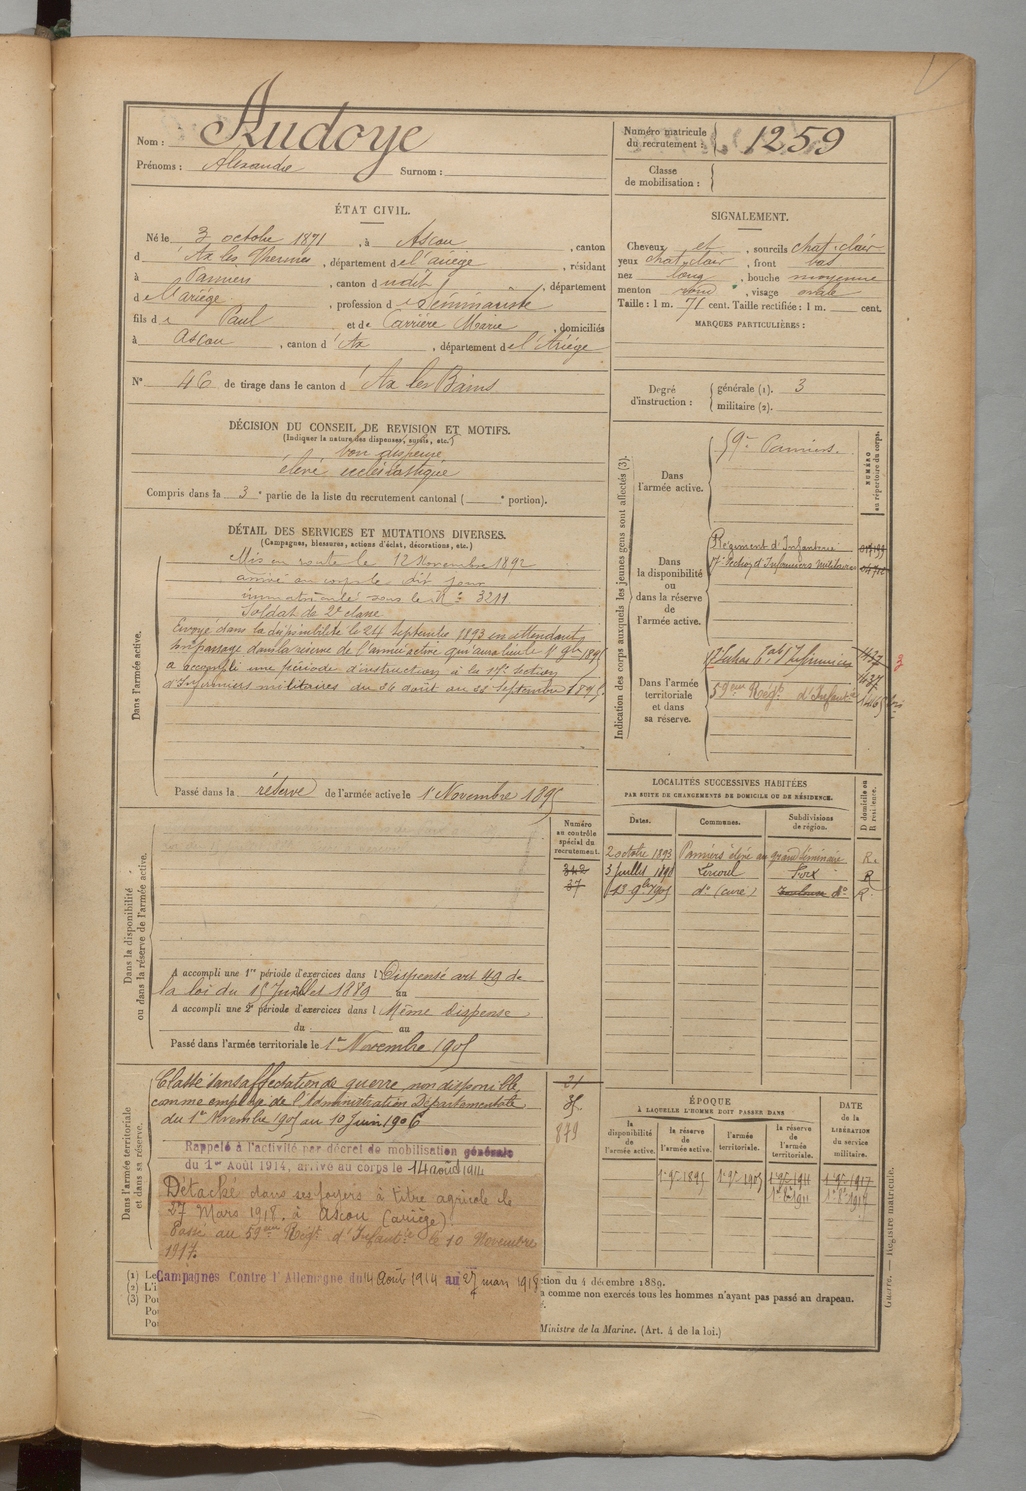 Nom : Audoye
Prénoms : Alexandre Surnom :
Numéro matricule du recrutement : 1259
Classe de mobilisation :
ÉTAT CIVIL.
Né le 3 octobre 1871, à Ascou, canton
d'Ax les Thermes, département de l'ariège, résidant
à Pamiers, canton d udit, département
de l'ariège, profession de Séminariste
fils de Paul et de Carrière Marie, domiciliés
à Ascou, canton d'Ax, département de l'Ariège
N° 46 de tirage dans le canton d'Ax les Bains
SIGNALEMENT.
Cheveux et, sourcils chat. clair
yeux chat. clair, front bas
nez long, bouche moyenne
menton rond, visage ovale
Taille : 1 m. 71 cent. Taille rectifiée : 1 m. cent.
MARQUES PARTICULIÈRES :
Degré d'instruction : générale (1). 3
militaire (2).
DÉCISION DU CONSEIL DE REVISION ET MOTIFS.
(Indiquer la nature des dispenses, sursis, etc.)
bon dispensé
élève ecclésiastique
Compris dans la 3e partie de la liste du recrutement cantonal ( e portion).
DÉTAIL DES SERVICES ET MUTATIONS DIVERSES.
(Campagnes, blessures, actions d'éclat, décorations, etc.)
Dans l'armée active.
Mis en route le 12 Novembre 1892
arrivé au corps le dit jour
immatriculé sous le N° 3211
Soldat de 2e classe
Envoyé dans la disponibilité le 24 Septembre 1893 en attendant
son passage dans la réserve de l'armée active qui aura lieu le 1r 9bre 1895
a accompli une période d'instruction à la 17e Section
d'Infirmiers militaires du 26 août au 22 Septembre 1895.
Passé dans la réserve de l'armée active le 1r Novembre 1895
Indication des corps auxquels les jeunes gens sont affectés (3).
NUMÉRO au répertoire du corps.
Dans l'armée active.
59e Pamiers.
Dans la disponibilité ou dans la réserve de l'armée active.
Régiment d'Infanterie
17e Section d'Infirmiers militaires
Dans l'armée territoriale et dans sa réserve.
1437 3
1437
59eme Régt d'Infantie
LOCALITÉS SUCCESSIVES HABITÉES
PAR SUITE DE CHANGEMENTS DE DOMICILE OU DE RÉSIDENCE.
Dates. Communes. Subdivisions de région. D domicile ou R résidence.
2 octobre 1893 Pamiers élève au grand séminaire R.
3 juillet 1898 Lercoul Foix R
13 9bre 1905 d° (curé) d° R.
Dans la disponibilité ou dans la réserve de l'armée active.
Numéro au contrôle spécial du recrutement.
342
37
A accompli une 1re période d'exercices dans l Dispensé art 49 de
la loi du 15 Juillet 1889 au
A accompli une 2e période d'exercices dans l Même dispense
du au
Passé dans l'armée territoriale le 1er Novembre 1905
Dans l'armée territoriale et dans sa réserve.
Classé dans affectation de guerre non disponible
comme employé de l'Administration Départementale
du 1er Novembre 1905 au 10 Juin 1906
21
35
879
Rappelé à l'activité par décret de mobilisation générale
du 1er Août 1914, arrivé au corps le 14 aoud 1914
Détaché dans ses foyers à titre agricole le
27 Mars 1918. à Ascou (ariège)
Passé au 59eme Régt d'Infantie le 10 Novembre
1917.
Campagnes Contre l'Allemagne du 14 Août 1914 au 27 mars 1918
ÉPOQUE
À LAQUELLE L'HOMME DOIT PASSER DANS
la disponibilité de l'armée active. la réserve de l'armée active. l'armée territoriale. la réserve de l'armée territoriale.
DATE de la LIBÉRATION du service militaire.
1r 9re 1895 1r 9re 1905 1r 9re 1911 1r 9re 1917
1r 8re 1911 1r 8re 1917
(1) Le
(2) L'i
(3) Pou
Pou
Pou
ction du 4 décembre 1889.
a comme non exercés tous les hommes n'ayant pas passé au drapeau.
Ministre de la Marine. (Art. 4 de la loi.)
Guerre. — Registre matricule.